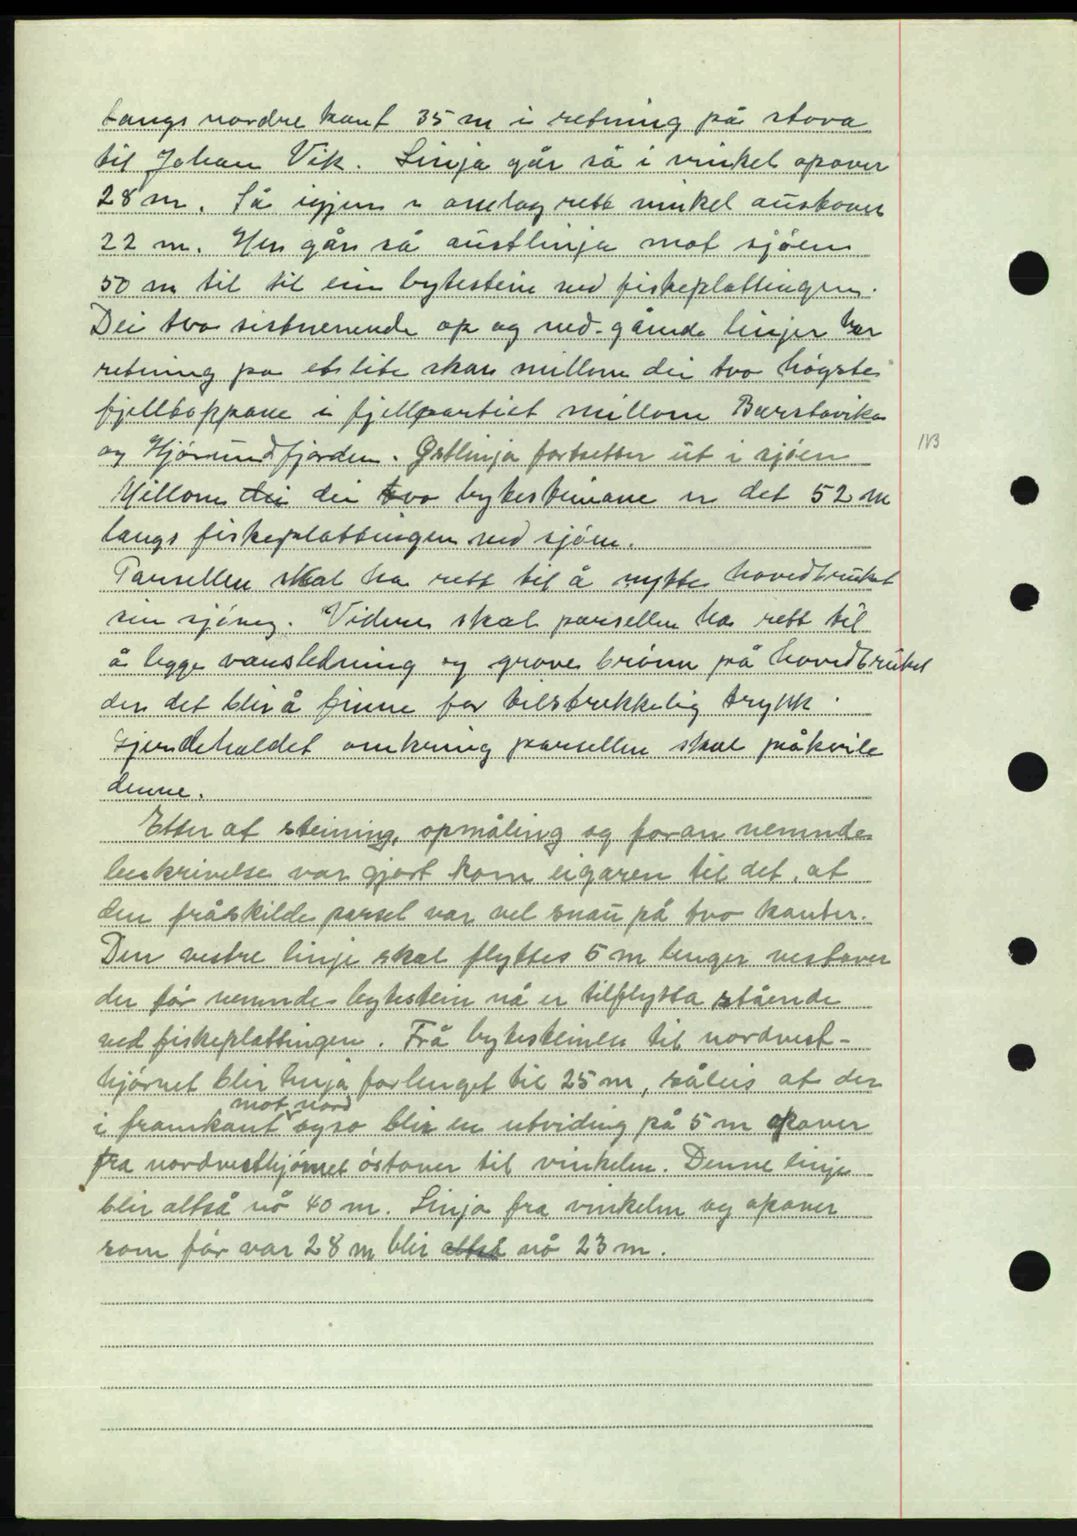 langs nordre kant 35 m i retning på stova
til Johan Vik. Linja går så i vinkel opover
28 m. Så igjen i omlag rett vinkel austover
22 m. Her går så austlinja mot sjøen
50 m til til ein bytestein ved fiskeplattingen.
Dei tvo sistnemende op og ned-gåande linjer har
retning på et lite skar millom dei tvo høgste
fjelltoppane i fjellpartiet millom Barstavika
og Hjørundfjorden. Østlinja fortsetter ut i sjøen
Millom dei dei tvo bytesteinane er det 52 m
langs fiskeplattingen ved sjøen.
Parsellen skal ha rett til å nytte hovedbruket
sin sjøveg. Videre skal parsellen ha rett til
å legge vassledning og grave brønn på hovedbruket
der det blir å finne for tilstrekkelig trykk.
Gjerdehaldet omkring parsellen skal påkvile
denne.
Etter at steining, opmåling og foran nemnde
beskrivelse var gjort kom eigaren til det, at
den fråskilde parsel var vel snau på tvo kanter.
Den vestre linje skal flyttes 5 m lenger vestover
der før nemnde bytestein nå er tilflytta stående
ved fiskeplattingen. Frå bytesteinen til nordvest-
hjørnet blir linja forlenget til 25 m, såleis at der
mot nord
i framkant også blir en utviding på 5 m opover
fra nordvesthjørnet østover til vinkelen. Denne linje
blir altså nå 40 m. Linja fra vinkelen og opover
som før var 28 m blir altså nå 23 m.